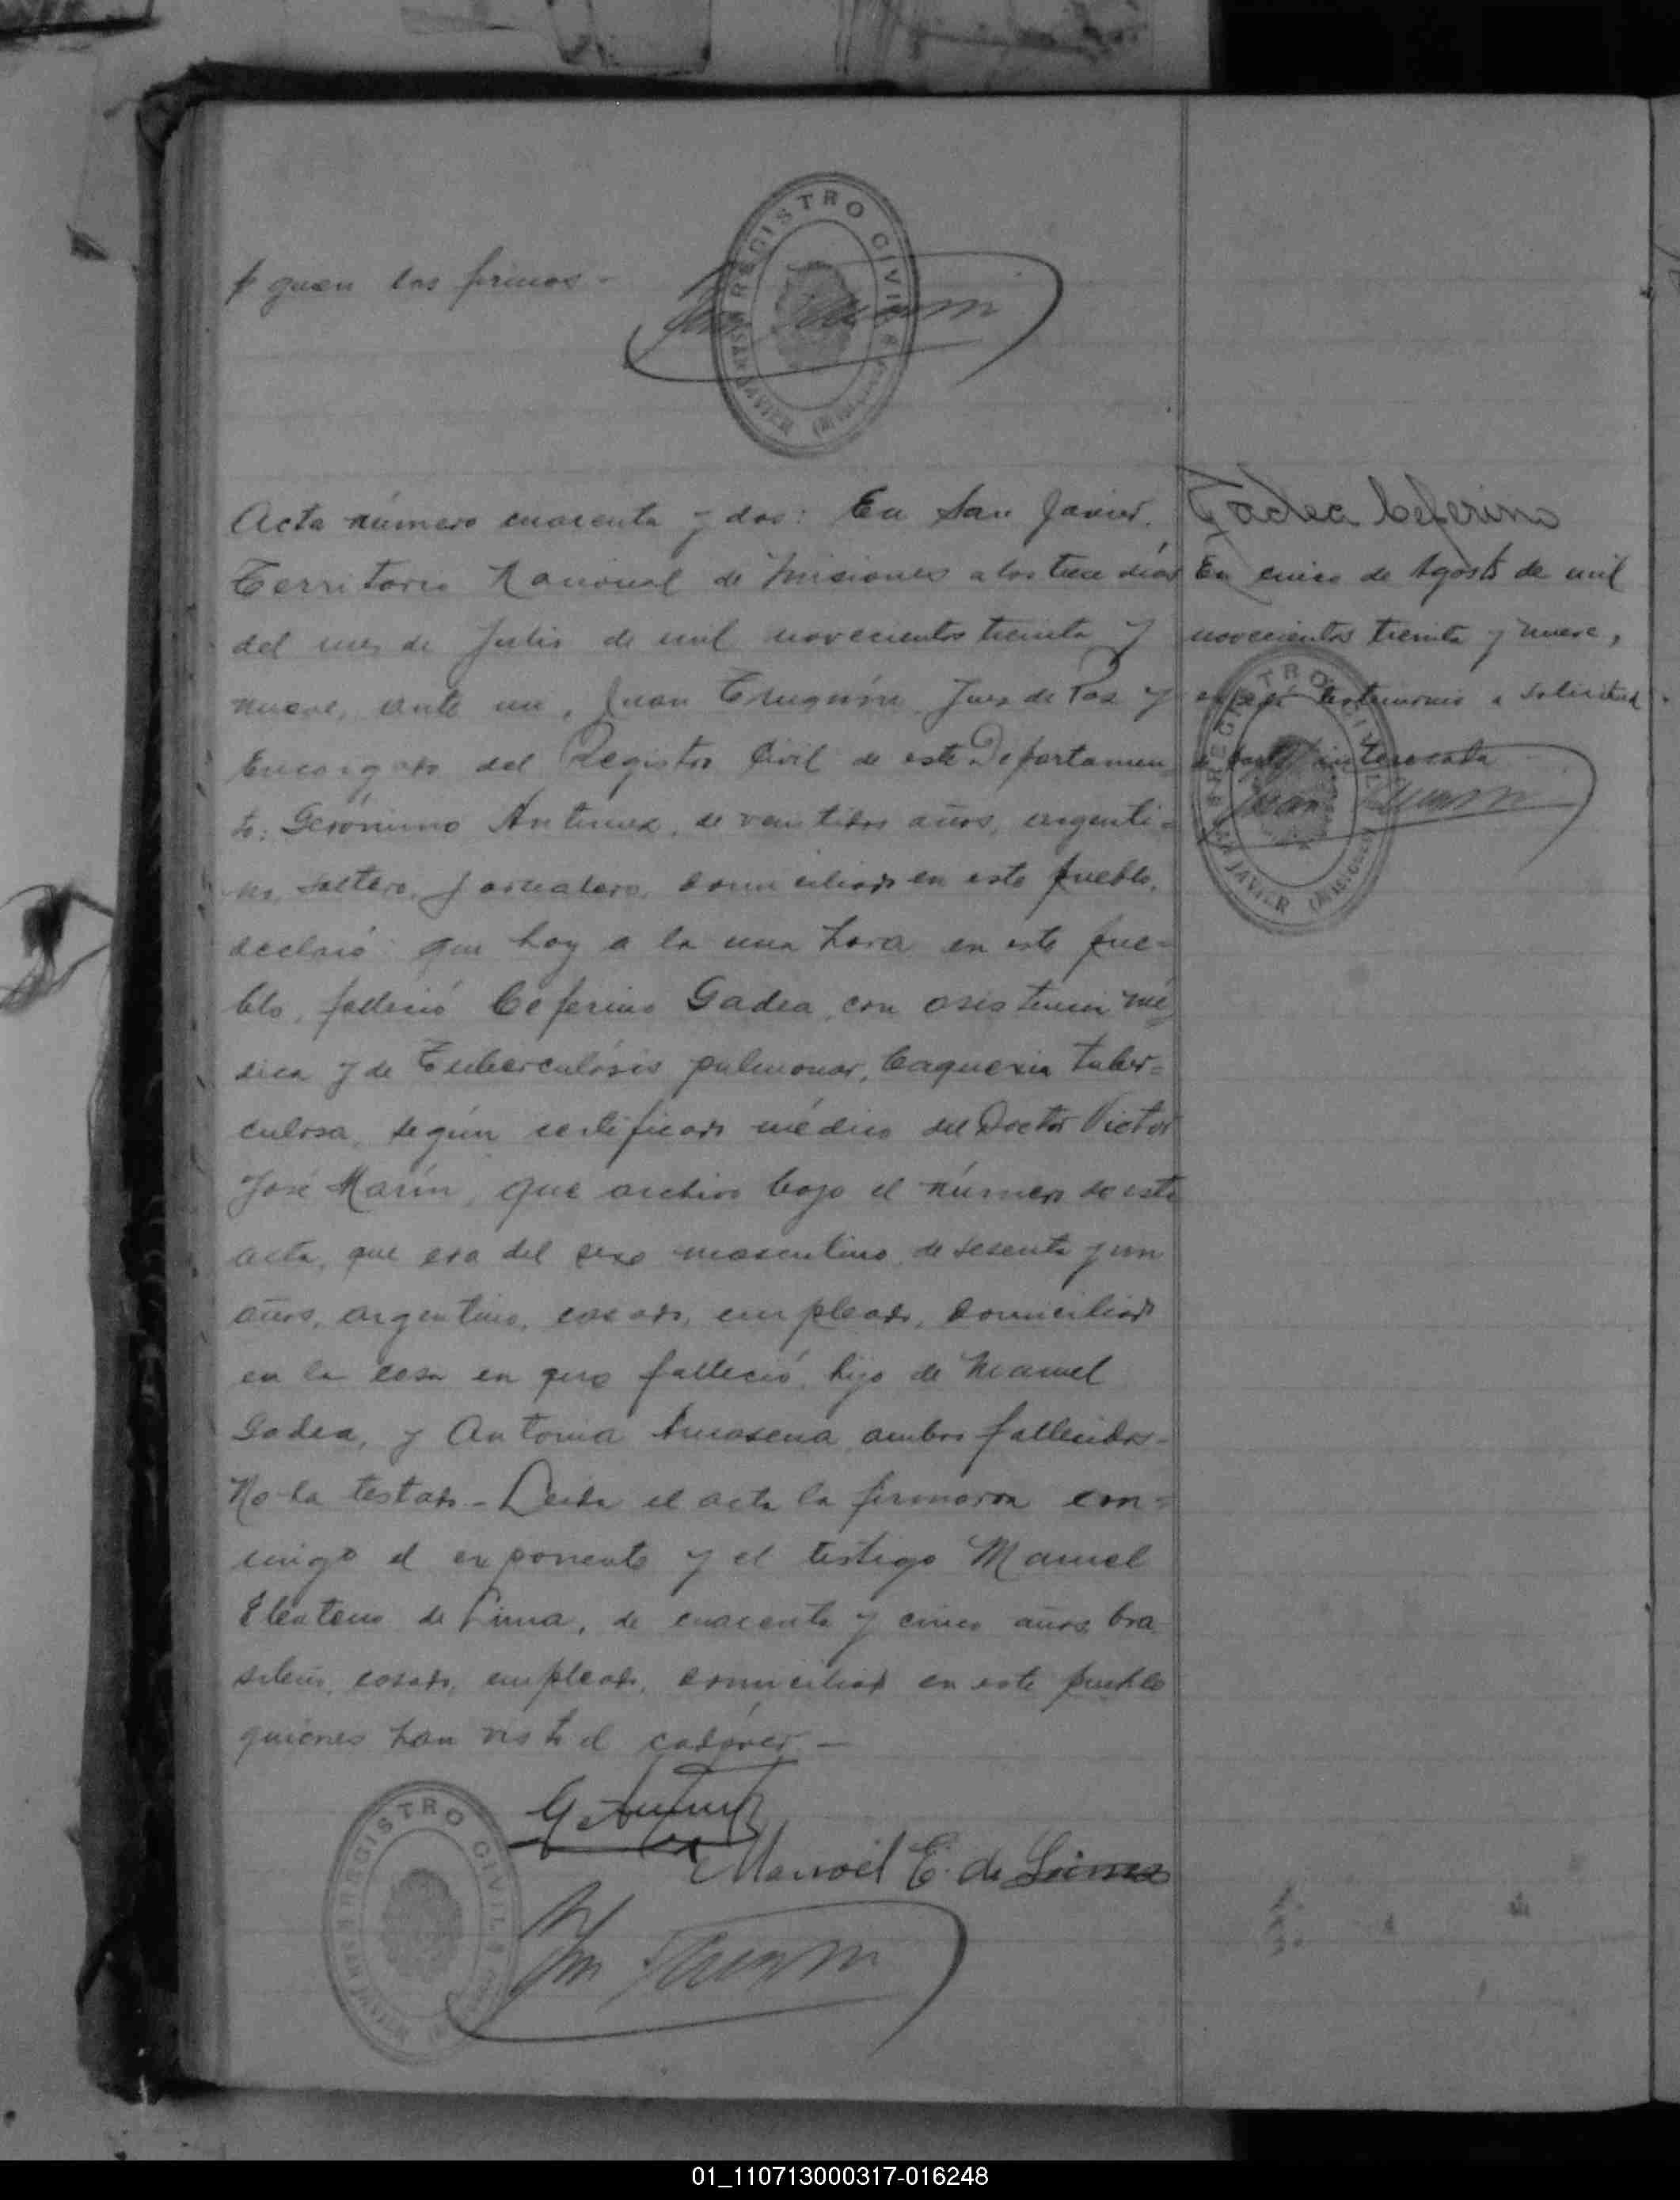 siguen las firmas -
REGISTRO CIVIL
SAN JAVIER (Misiones)
Acta número cuarenta y dos: En San Javier,
Territorio Nacional de Misiones a los trece días
del mes de Julio de mil novecientos treinta y
nueve, ante mi, Juan Juez de Paz y
Encargado del Registro Civil de este Departamen
to: Gerónimo Antunez, de veintidos años, argenti-
no, soltero, jornalero, domiciliado en este pueblo,
declaró que hoy a la una hora en este pue=
blo, falleció Ceferino Gadea, con asistencia mé
dica y de Tuberculósis pulmonar, Caquexia tuber=
culosa, según certificado médico del Doctor Victor
José Marín, que archivo bajo el número de esta
acta, que era del sexo masculino, de sesenta y un
años, argentino, casado, empleado, domiciliado
en la casa en que falleció, hijo de Manuel
Gadea, y Antonia ambos fallecidos-
No ha testado - Leida el acta la firmaron con=
migo el exponente y el testigo Manuel
Eleuterio de Lima, de cuarenta y cinco años, bra
sileño, casado, empleado, domiciliado en este pueblo
quienes han visto el cadáver. -
Manoel E. de Lima
REGISTRO CIVIL
SAN JAVIER
Gadea Ceferino
En cinco de Agosto de mil
novecientos treinta y nueve,
expedí testimonio a solicitud
de parte interesada
REGISTRO CIVIL
SAN JAVIER (Misiones)
01_110713000317-016248